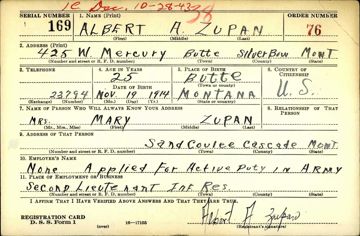 1C Dec. 10-28-43
38
SERIAL NUMBER 1. NAME (Print) ORDER NUMBER
169 ALBERT A. ZUPAN 76
(First) (Middle) (Last)
2. ADDRESS (Print)
425 W. Mercury Butte Silver Bow Mont
(Number and street or R. F. D. number) (Town) (County) (State)
3. TELEPHONE 4. AGE IN YEARS 5. PLACE OF BIRTH 6. COUNTRY OF CITIZENSHIP
25 Butte
DATE OF BIRTH (Town or county)
23794 Nov. 19 1914 MONTANA U.S.
(Exchange) (Number) (Mo.) (Day) (Yr.) (State or country)
7. NAME OF PERSON WHO WILL ALWAYS KNOW YOUR ADDRESS 8. RELATIONSHIP OF THAT PERSON
Mrs. MARY ZUPAN
(Mr., Mrs., Miss) (First) (Middle) (Last)
9. ADDRESS OF THAT PERSON
Sand Coulee Cascade Mont.
(Number and street or R. F. D. number) (Town) (County) (State)
10. EMPLOYER'S NAME
None Applied For Active Duty in Army
11. PLACE OF EMPLOYMENT OR BUSINESS
Second Lieutenant Inf. Res.
(Number and street or R. F. D. number) (Town) (County) (State)
I AFFIRM THAT I HAVE VERIFIED ABOVE ANSWERS AND THAT THEY ARE TRUE.
REGISTRATION CARD
D. S. S. Form 1 16-17105 Albert A Zupan
(Registrant's signature)